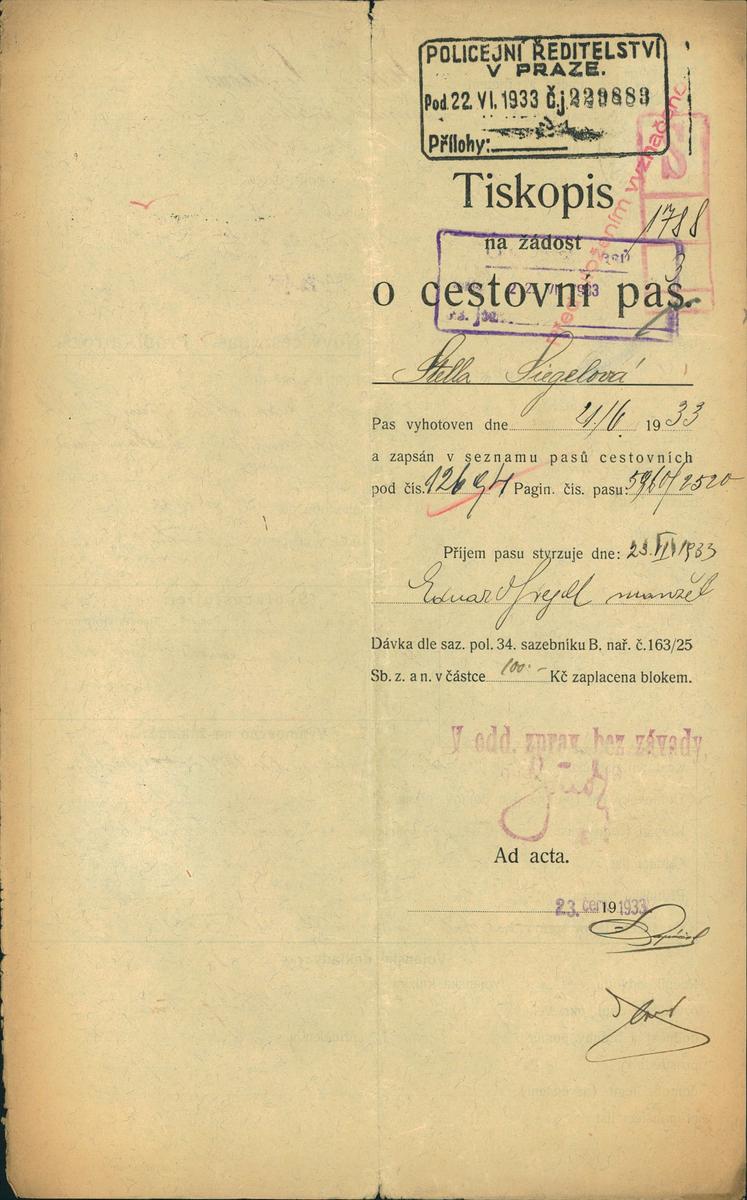 POLICEJNÍ ŘEDITELSTVÍ
V PRAZE.
Pod. 22. VI. 1933 Č.j. 229883
Přílohy:
Tiskopis
1788
na žádost
3
o cestovní pas.
Stella Siegelová
Pas vyhotoven dne 21/6. 1933
a zapsán v seznamu pasů cestovních
pod čís. 12694 Pagin. čís. pasu: 5960/2520
Příjem pasu stvrzuje dne: 23. VI. 1933
Eduard Siegel manžel
Dávka dle saz. pol. 34. sazebníku B. nař. č. 163/25
Sb. z. a n. v částce 100.- Kč zaplacena blokem.
V odd. zprav. bez závady
Ad acta.
23. čer. 19 1933